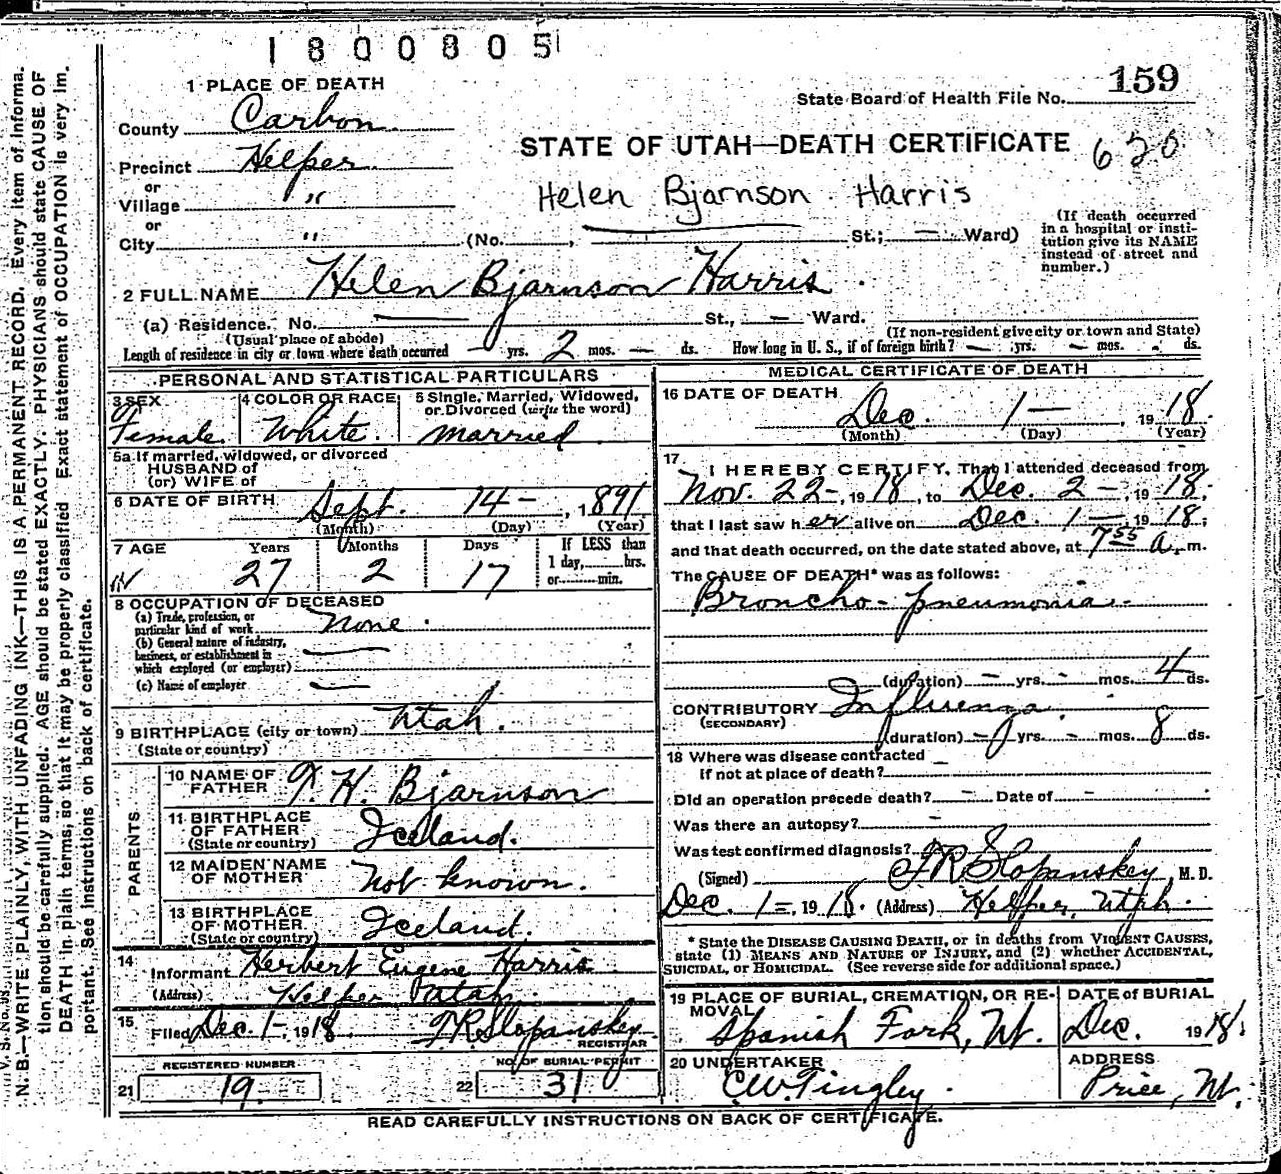 1800805
159
1 PLACE OF DEATH
State Board of Health File No.
County Carbon
STATE OF UTAH—DEATH CERTIFICATE
Precinct Helper
or
Village "
Helen Bjarnson Harris
or
City " (No. , St.; — Ward)
(If death occurred in a hospital or insti-
tution give its NAME
instead of street and
number.)
2 FULL NAME Helen Bjarnson Harris
(a) Residence. No. St., — Ward.
(Usual place of abode)
(If non-resident give city or town and State)
Length of residence in city or town where death occurred — yrs. 2 mos. — ds. How long in U. S., if of foreign birth? — yrs. — mos. - ds.
PERSONAL AND STATISTICAL PARTICULARS
3 SEX
Female
4 COLOR OR RACE
White
5 Single, Married, Widowed,
or Divorced (write the word)
married
5a If married, widowed, or divorced
HUSBAND of
(or) WIFE of
6 DATE OF BIRTH Sept. 14 - , 1891
(Month) (Day) (Year)
7 AGE Years Months Days
27 2 17
If LESS than
1 day, hrs.
or min.
8 OCCUPATION OF DECEASED
(a) Trade, profession, or
particular kind of work none
(b) General nature of industry,
business, or establishment in
which employed (or employer)
(c) Name of employer —
9 BIRTHPLACE (city or town) Utah.
(State or country)
PARENTS
10 NAME OF
FATHER T. H. Bjarnson
11 BIRTHPLACE
OF FATHER
(State or country) Iceland.
12 MAIDEN NAME
OF MOTHER not known.
13 BIRTHPLACE
OF MOTHER
(State or country) Iceland.
14
Informant Herbert Eugene Harris
(Address) Helper Utah.
15
Filed Dec. 1-, 1918 F.R. Slopanskey
REGISTRAR
REGISTERED NUMBER
21 19.
NO. OF BURIAL PERMIT
22 31
MEDICAL CERTIFICATE OF DEATH
16 DATE OF DEATH
Dec. 1— , 1918.
(Month) (Day) (Year)
17
I HEREBY CERTIFY, That I attended deceased from
Nov. 22-, 1918, to Dec. 2-, 1918,
that I last saw her alive on Dec. 1— 1918,
and that death occurred, on the date stated above, at 7 55 a. m.
The CAUSE OF DEATH* was as follows:
Broncho-pneumonia.
(duration) — yrs. - mos. 4 ds.
CONTRIBUTORY Influenza.
(SECONDARY)
(duration) — yrs. - mos. 8 ds.
18 Where was disease contracted
If not at place of death?
Did an operation precede death? - Date of -
Was there an autopsy? -
Was test confirmed diagnosis?
(Signed) F R Slopanskey, M. D.
Dec. 1-, 1918. (Address) Helper, Utah.
* State the DISEASE CAUSING DEATH, or in deaths from VIOLENT CAUSES,
state (1) MEANS AND NATURE OF INJURY, and (2) whether ACCIDENTAL,
SUICIDAL, or HOMICIDAL. (See reverse side for additional space.)
19 PLACE OF BURIAL, CREMATION, OR RE-
MOVAL
Spanish Fork, Ut.
DATE of BURIAL
Dec. 1918.
20 UNDERTAKER
C.W. Tingley.
ADDRESS
Price, Ut.
READ CAREFULLY INSTRUCTIONS ON BACK OF CERTIFICATE.
N. B.—WRITE PLAINLY, WITH UNFADING INK—THIS IS A PERMANENT RECORD. Every item of informa-
tion should be carefully supplied. AGE should be stated EXACTLY. PHYSICIANS should state CAUSE OF
DEATH in plain terms, so that it may be properly classified Exact statement of OCCUPATION is very im-
portant. See instructions on back of certificate.